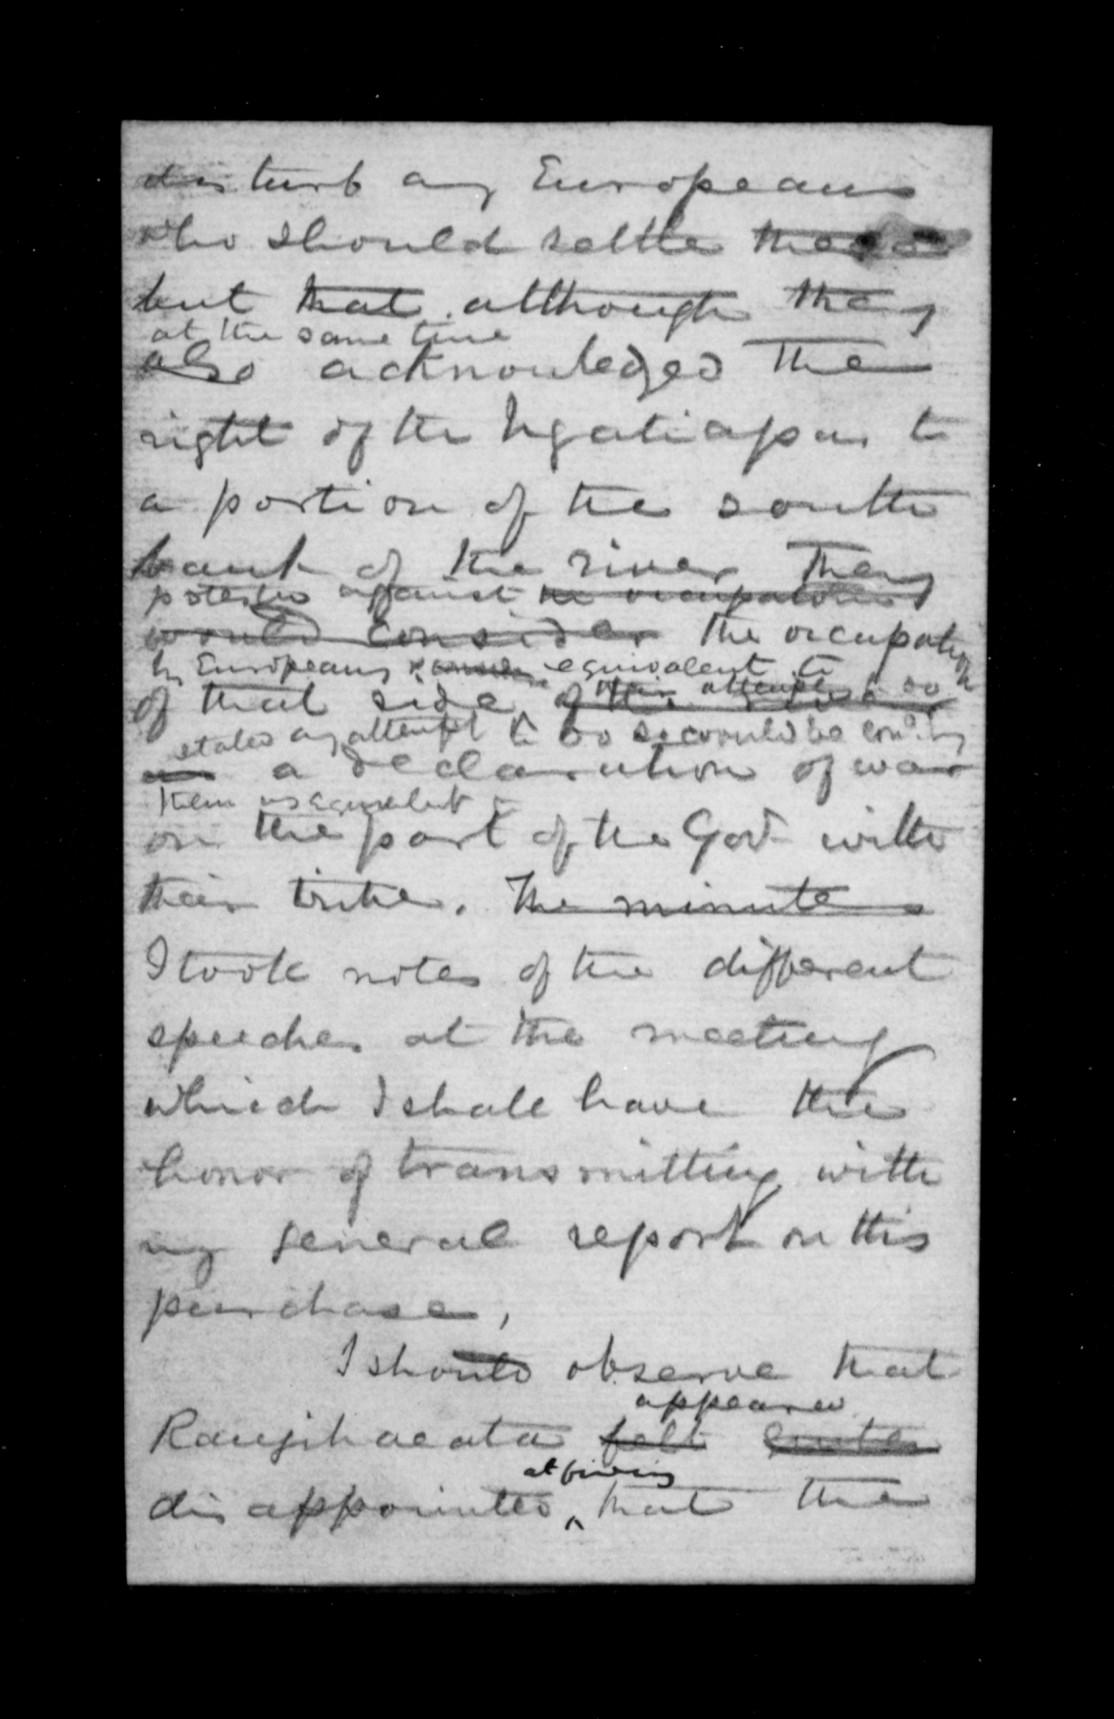 disturb any Europeans
who should settle there
but that although they
at the same time
also acknowledged the
right of the Ngatiapa to
a portion of the south
bank of the river They
protested against the occupation
would consider the occupation
by Europeans equivalent to
of that side of the attempt so
stated any attempt to do so would be cond. by
a declaration of war
them as equivalent to
on the part of the Govt with
their tribe. The minutes
I took notes of the different
speeches at the meeting
which I shall have the
honor of transmitting with
my general report on this
purchase,
I should observe that
appeared
Rangihaeata felt quite
at finding
disappointed ^ that the